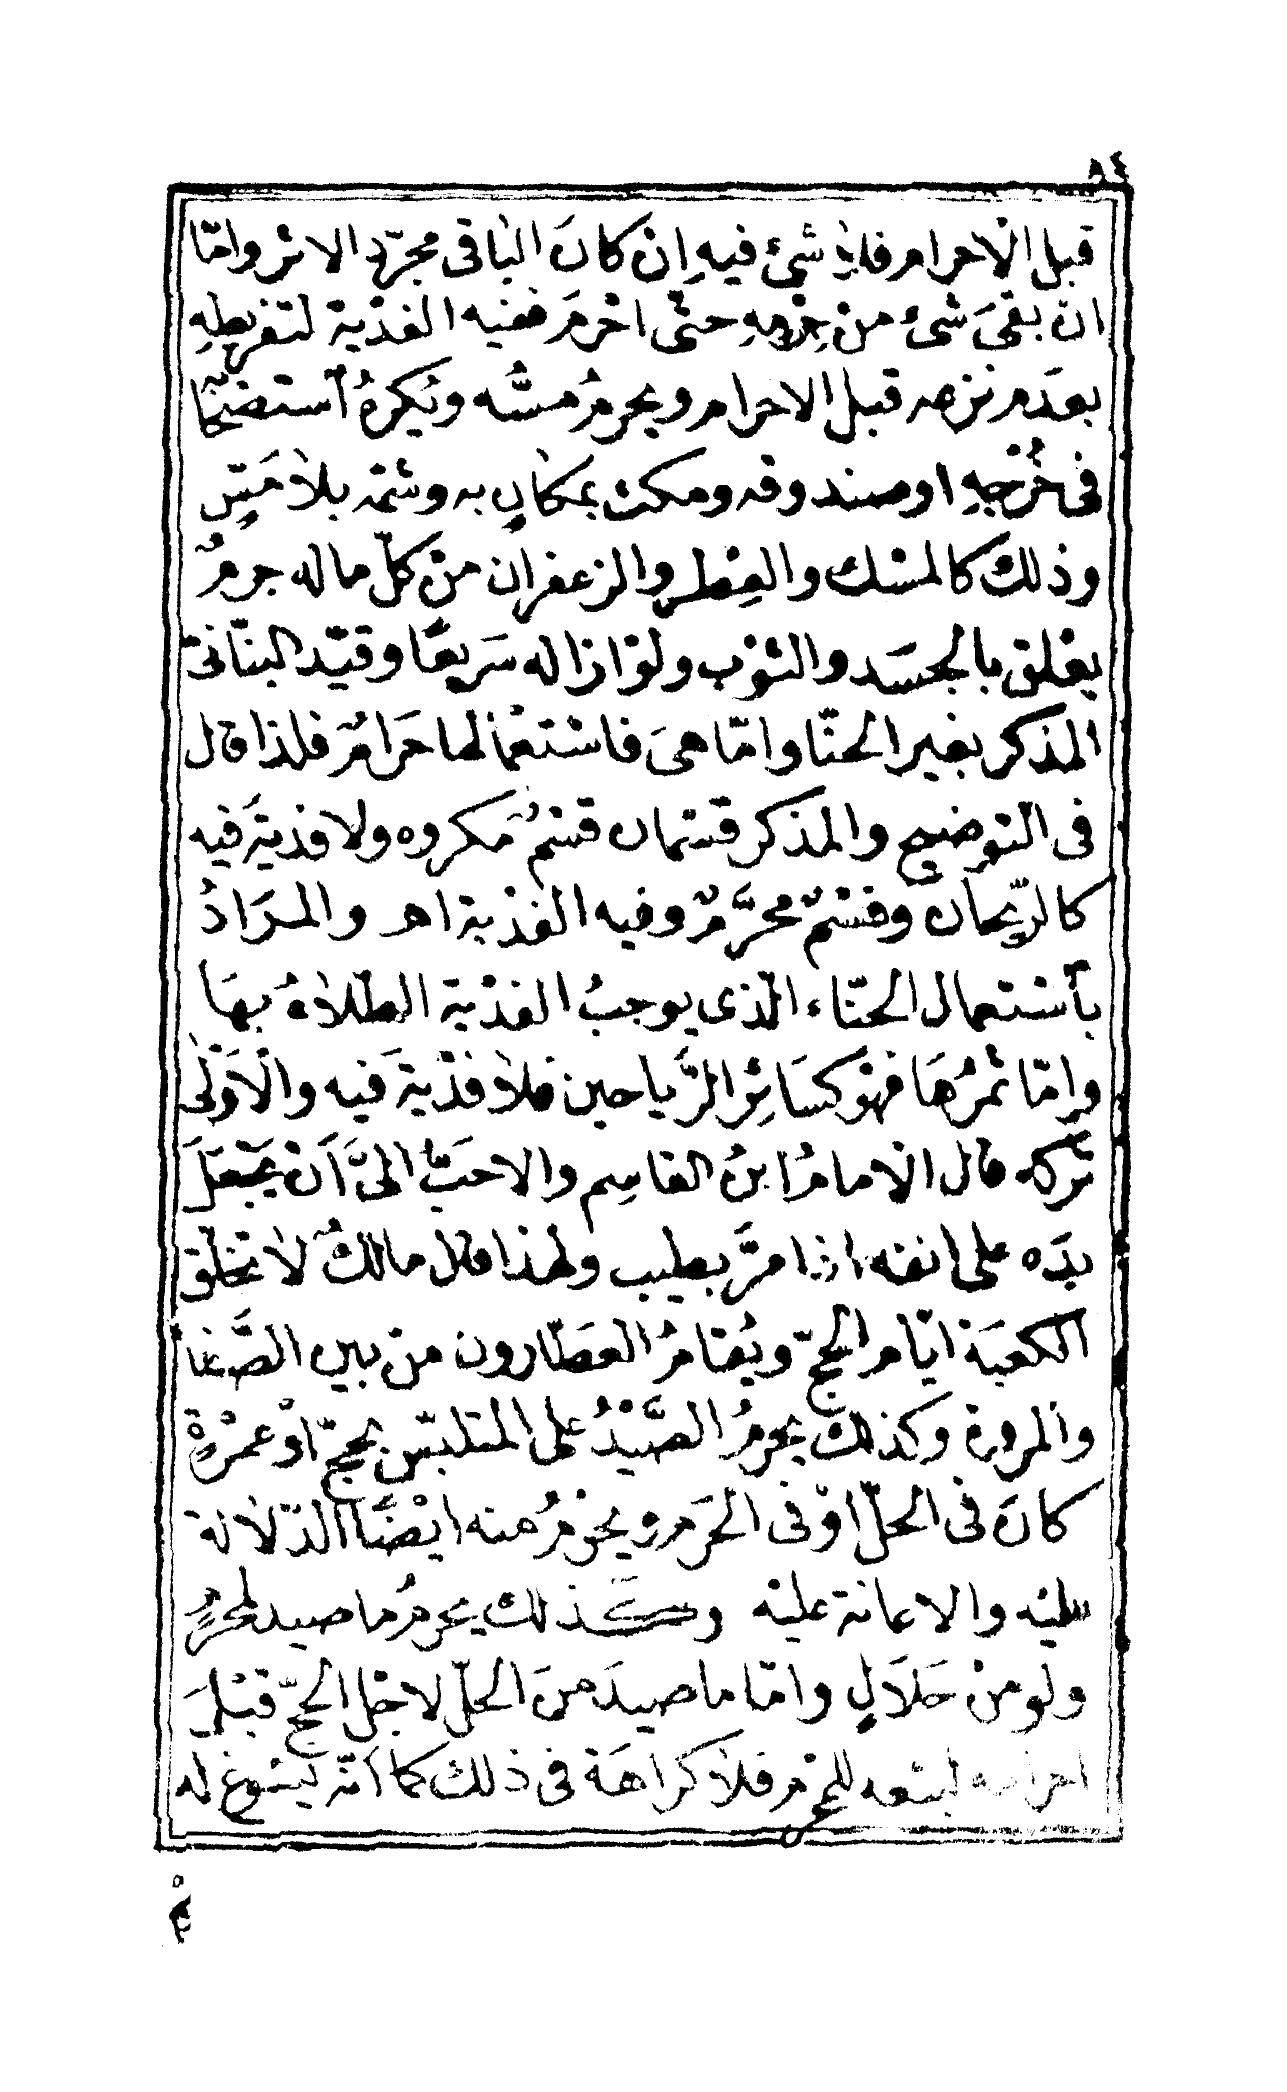 ٨٤
قبل الاحرام فلا شئ فيهِ اِنْ كانَ الباقى مجرّد الاثر وامّا
ان بقىَ شئ منْ جِرْمهِ حتّى احْرمَ ففيه الفدْية لتفريطِهِ
بعدَم نزعه قبل الاحرام ويحرمُ مسُّه ويُكرهُ آستصْحَابُهُ
فى خُرْجِهِ اوصندوقه ومكث بمكانٍ به وشمّه بلا مَسٍّ
وذلك كالمسْك والعِطْر والزعفران منْ كلّ ماله جرمٌ
يعْلق بالجسَد والثوْب ولوْ ازاله سَريعًا وقيّد البنّانىّ
المذكر بغير الحنّا وامّا هىَ فاسْتعْمالها حَرامٌ فلذا قال
فى التوضيح والمذكر قسْمان قسْمٌ مَكروه ولا فديةَ فيه
كالرّيْحان وقسْمٌ محرَّمٌ وفيه الفدْية اهـ والمرَادُ
بآسْتعمال الحنّاء الّذى يوجبُ الفدْية الطّلاءُ بهَا
وامّا ثمرُهَا فهوْ كسَائرْ الرَّياحين فلا فدْيةَ فيه والْاَوْلٰى
تَركه قال الْامامُ ابنُ القاسِم والاحَبُّ الىَّ اَنْ يجْعَلَ
يدَه على انفه اذا مرَّ بطيب ولهذا قال مالكٌ لا تخلّق
الكعبَة ايّام الحجّ ويُقامُ العَطّارون منْ بين الصَّفا
والمروة وكذلك يحرمُ الصَّيْدُ على المتلبّس بحجّ اوْ عمْرةٍ
كانَ فى الحلّ اوْ فى الحَرَم ويحْرمُ منه ايْضًا الدّلالة
عليْه والاعانة عليْه وكذلك يحرمُ ما صيد لمحْرمٍ
ولو منْ حَلَالٍ وامّا ما صيدَ منَ الحلّ لاجْل الحجّ قبْلَ
احرامه لبيْعه للمحْرم فلا كراهَة فى ذلك كما اَنّه يسُوغ له